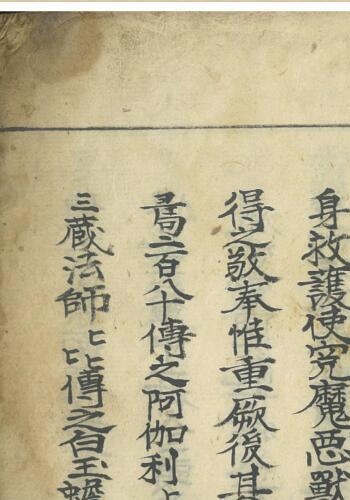 身救護使究魔惡獸
得之敬奉惟重厥後其
焉二百八十傳之阿伽利
三藏法師〻〻傳之白玉蟾